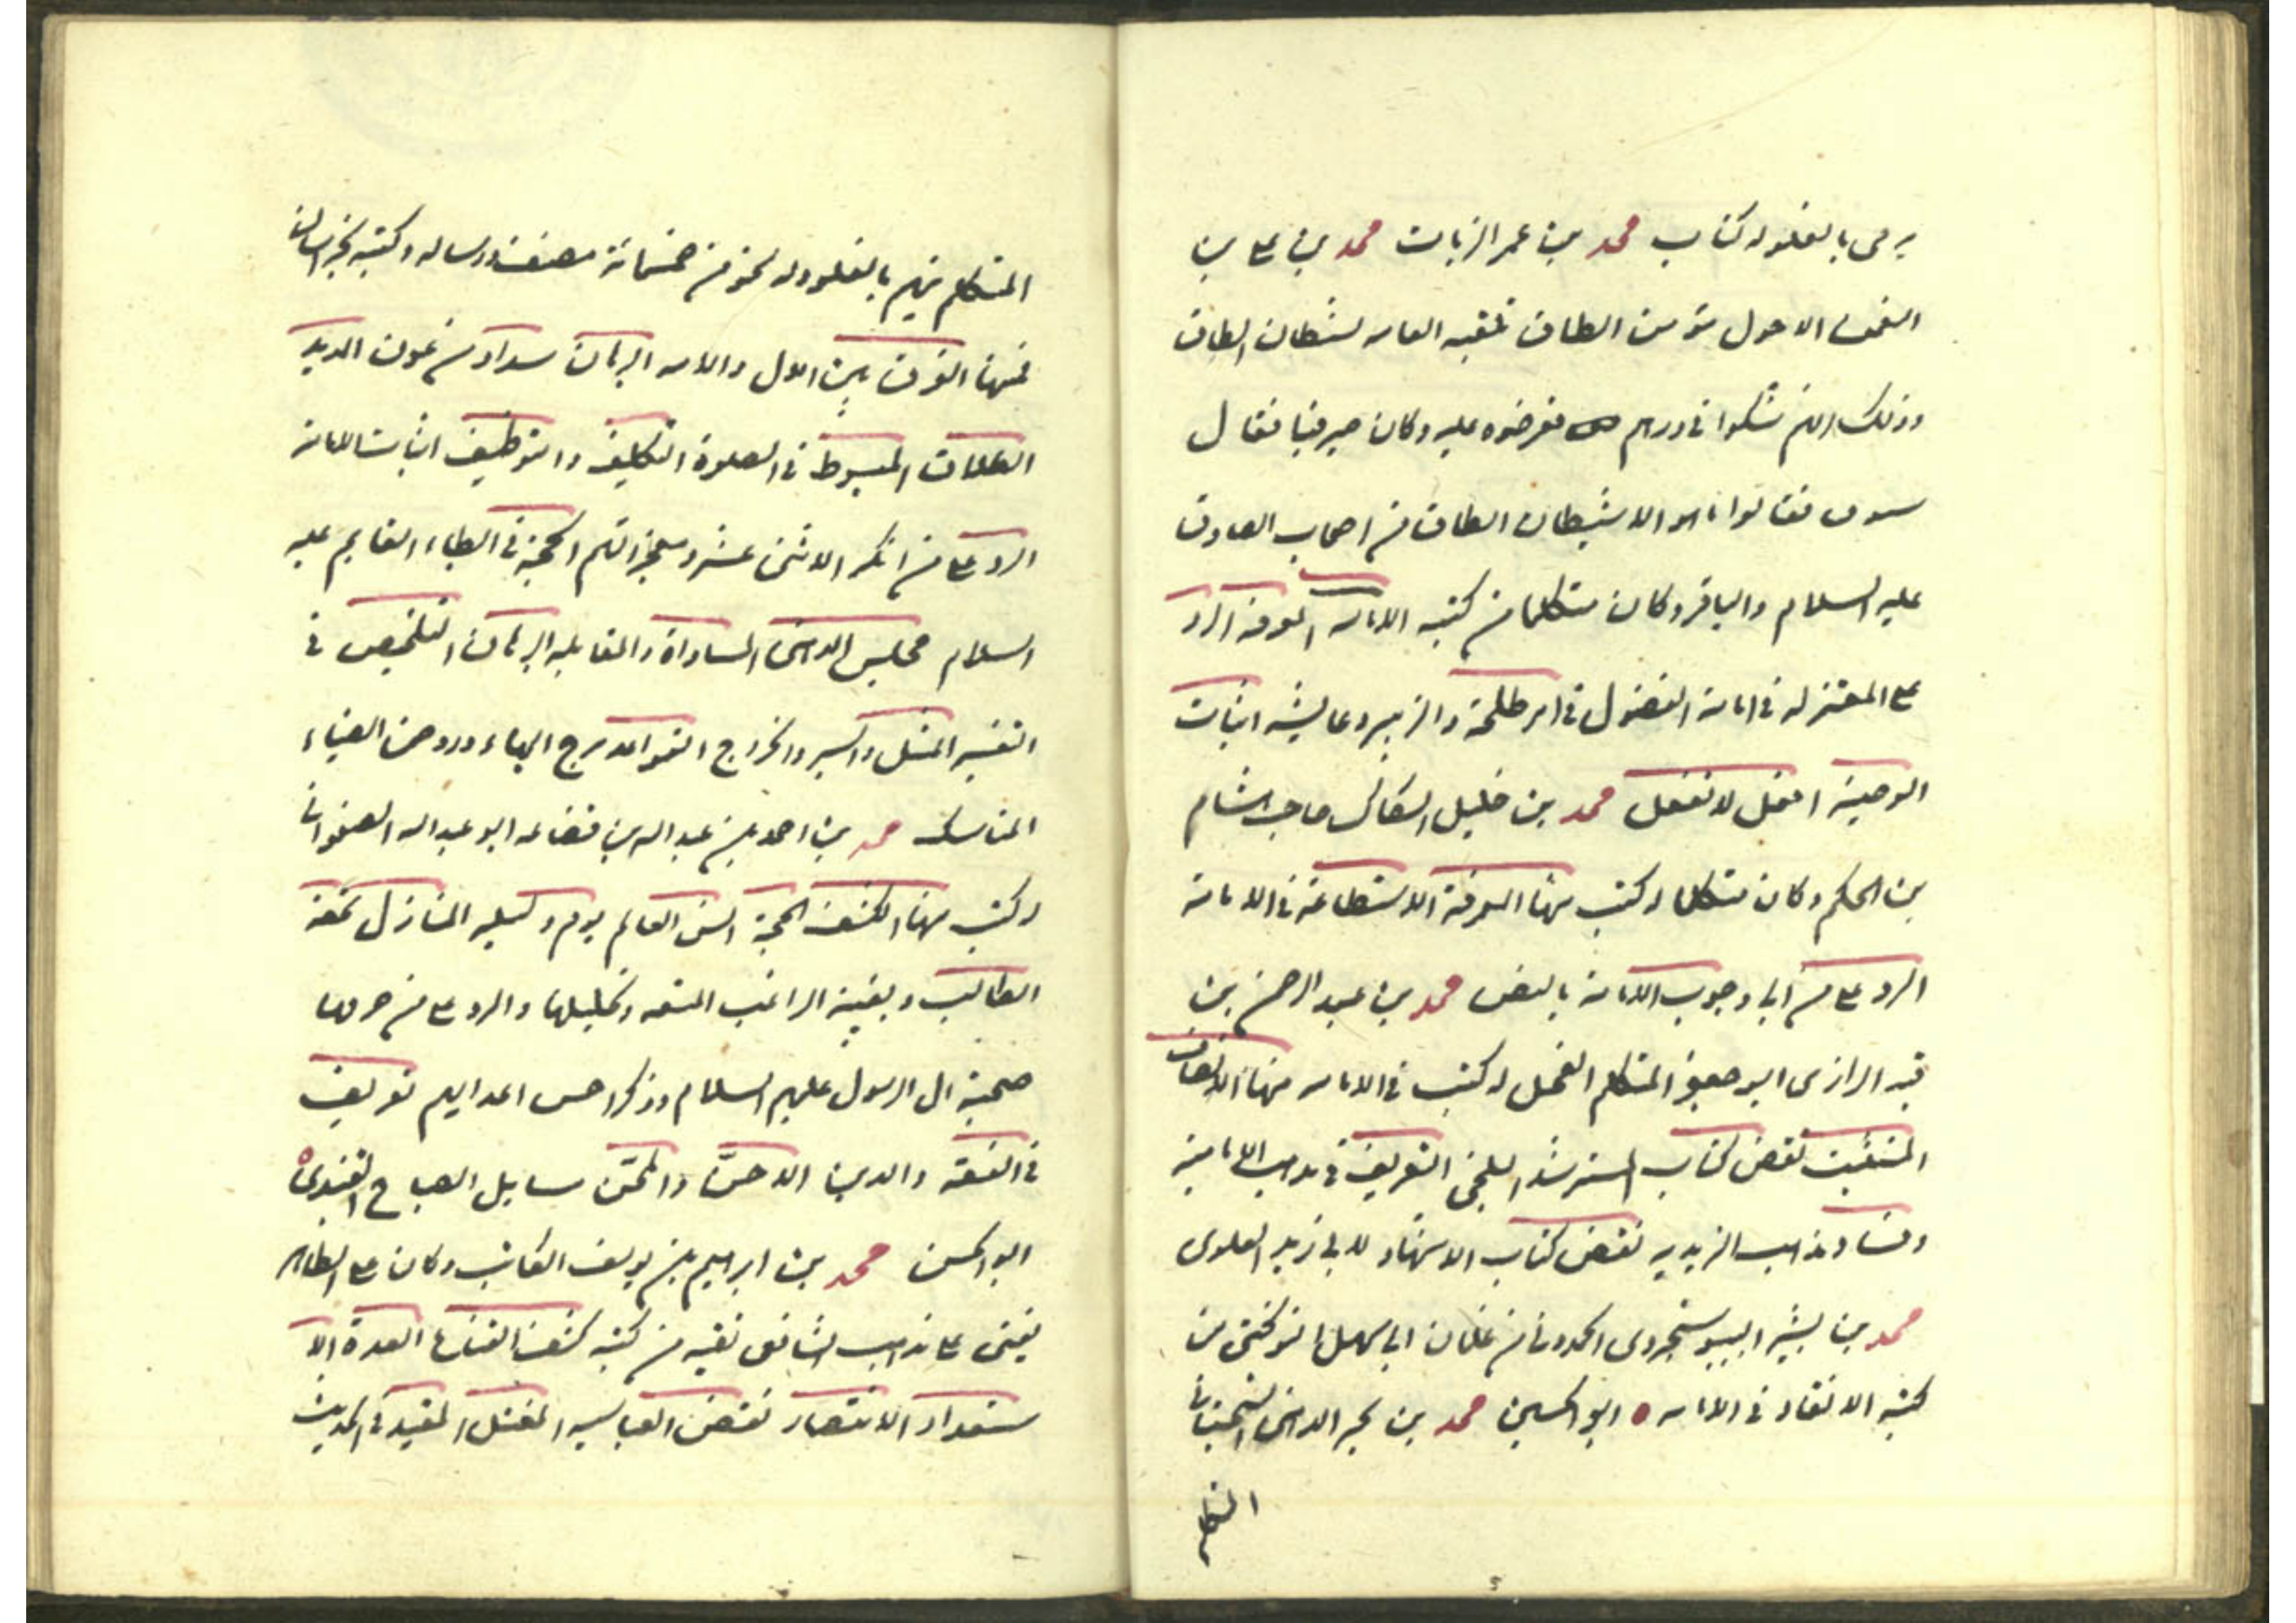 يرمى بالغلو له كتاب محمد بن عمر الزيات محمد بن على بن
النعمان الاحول مؤمن الطاق تلقبه العامه بشيطان الطاق
وذلك انهم شكوا فى درهم فعرضوه عليه وكان صيرفيا فقال
ستوق فقالوا ما هو الا شيطان الطاق من اصحاب الصادق
عليه السلام والباقر وكان متكلما من كتبه الامامه المعرفه الرد
على المعتزله فى امامة المفضول فى امر طلحة والزبير وعايشه اثبات
الوصية افعل لا تفعل محمد بن خليل السكاك صاحب هشام
بن الحكم وكان متكلما له كتب منها المعرفة الاستطاعة فى الامامة
الرد على من ابى وجوب الامامة بالنص محمد بن عبد الرحمن بن
قبه الرازى ابو جعفر المتكلم الفحل له كتب فى الامامه منها الانصاف
المستثبت نقض كتاب المسترشد للبلخى التعريف فى مذهب الامامية
وفساد مذاهب الزيديه نقض كتاب الاشهاد لابى زيد العلوى
محمد بن بشير السوسنجردى الحمدونى من غلمان ابى سهل النوبختى من
كتبه الانقاذ فى الامامه ابو الحسين محمد بن بحر الدهنى السجستانى
المتكلم
المتكلم يتهم بالغلو وله نحو من خمسمائة مصنف ورساله وكتبه بخراسان
فمنها الفرق بين الال والامه البرهان سداد من عون المديد
الطلاق المبسوط فى الصلوة التكليف والتوظيف اثبات الامامة
الرد على من انكر الاثنى عشر ومعجزاتهم الحجة فى ابطاء القايم عليه
السلام مجلس الدهنى المساواة والمقابله البرهان التلخيص فى
التفسير المثل والسير والخراج القواعد برج البهاء وروض الضياء
المناسك محمد بن احمد بن عبد الله بن قضاعه ابو عبد الله الصفوانى
له كتب منها الكشف الحجة انس العالم يوم وليله المنازل تحفة
الطالب وبغية الراغب المتعه وتحليلها والرد على من حرمها
صحبة ال الرسول عليهم السلام وذكر احن اعدايهم تعريف
فى الفقه والدين الاحن والمحن مسايل الصباح
ابو الحسن محمد بن ابراهيم بن يوسف الكاتب وكان على الظاهر
يفتى على مذهب الشافعى تقيه من كتبه كشف القناع العدة الا
ستعداد الانتصار نقض العباسيه المفتل المفيد فى الحديث